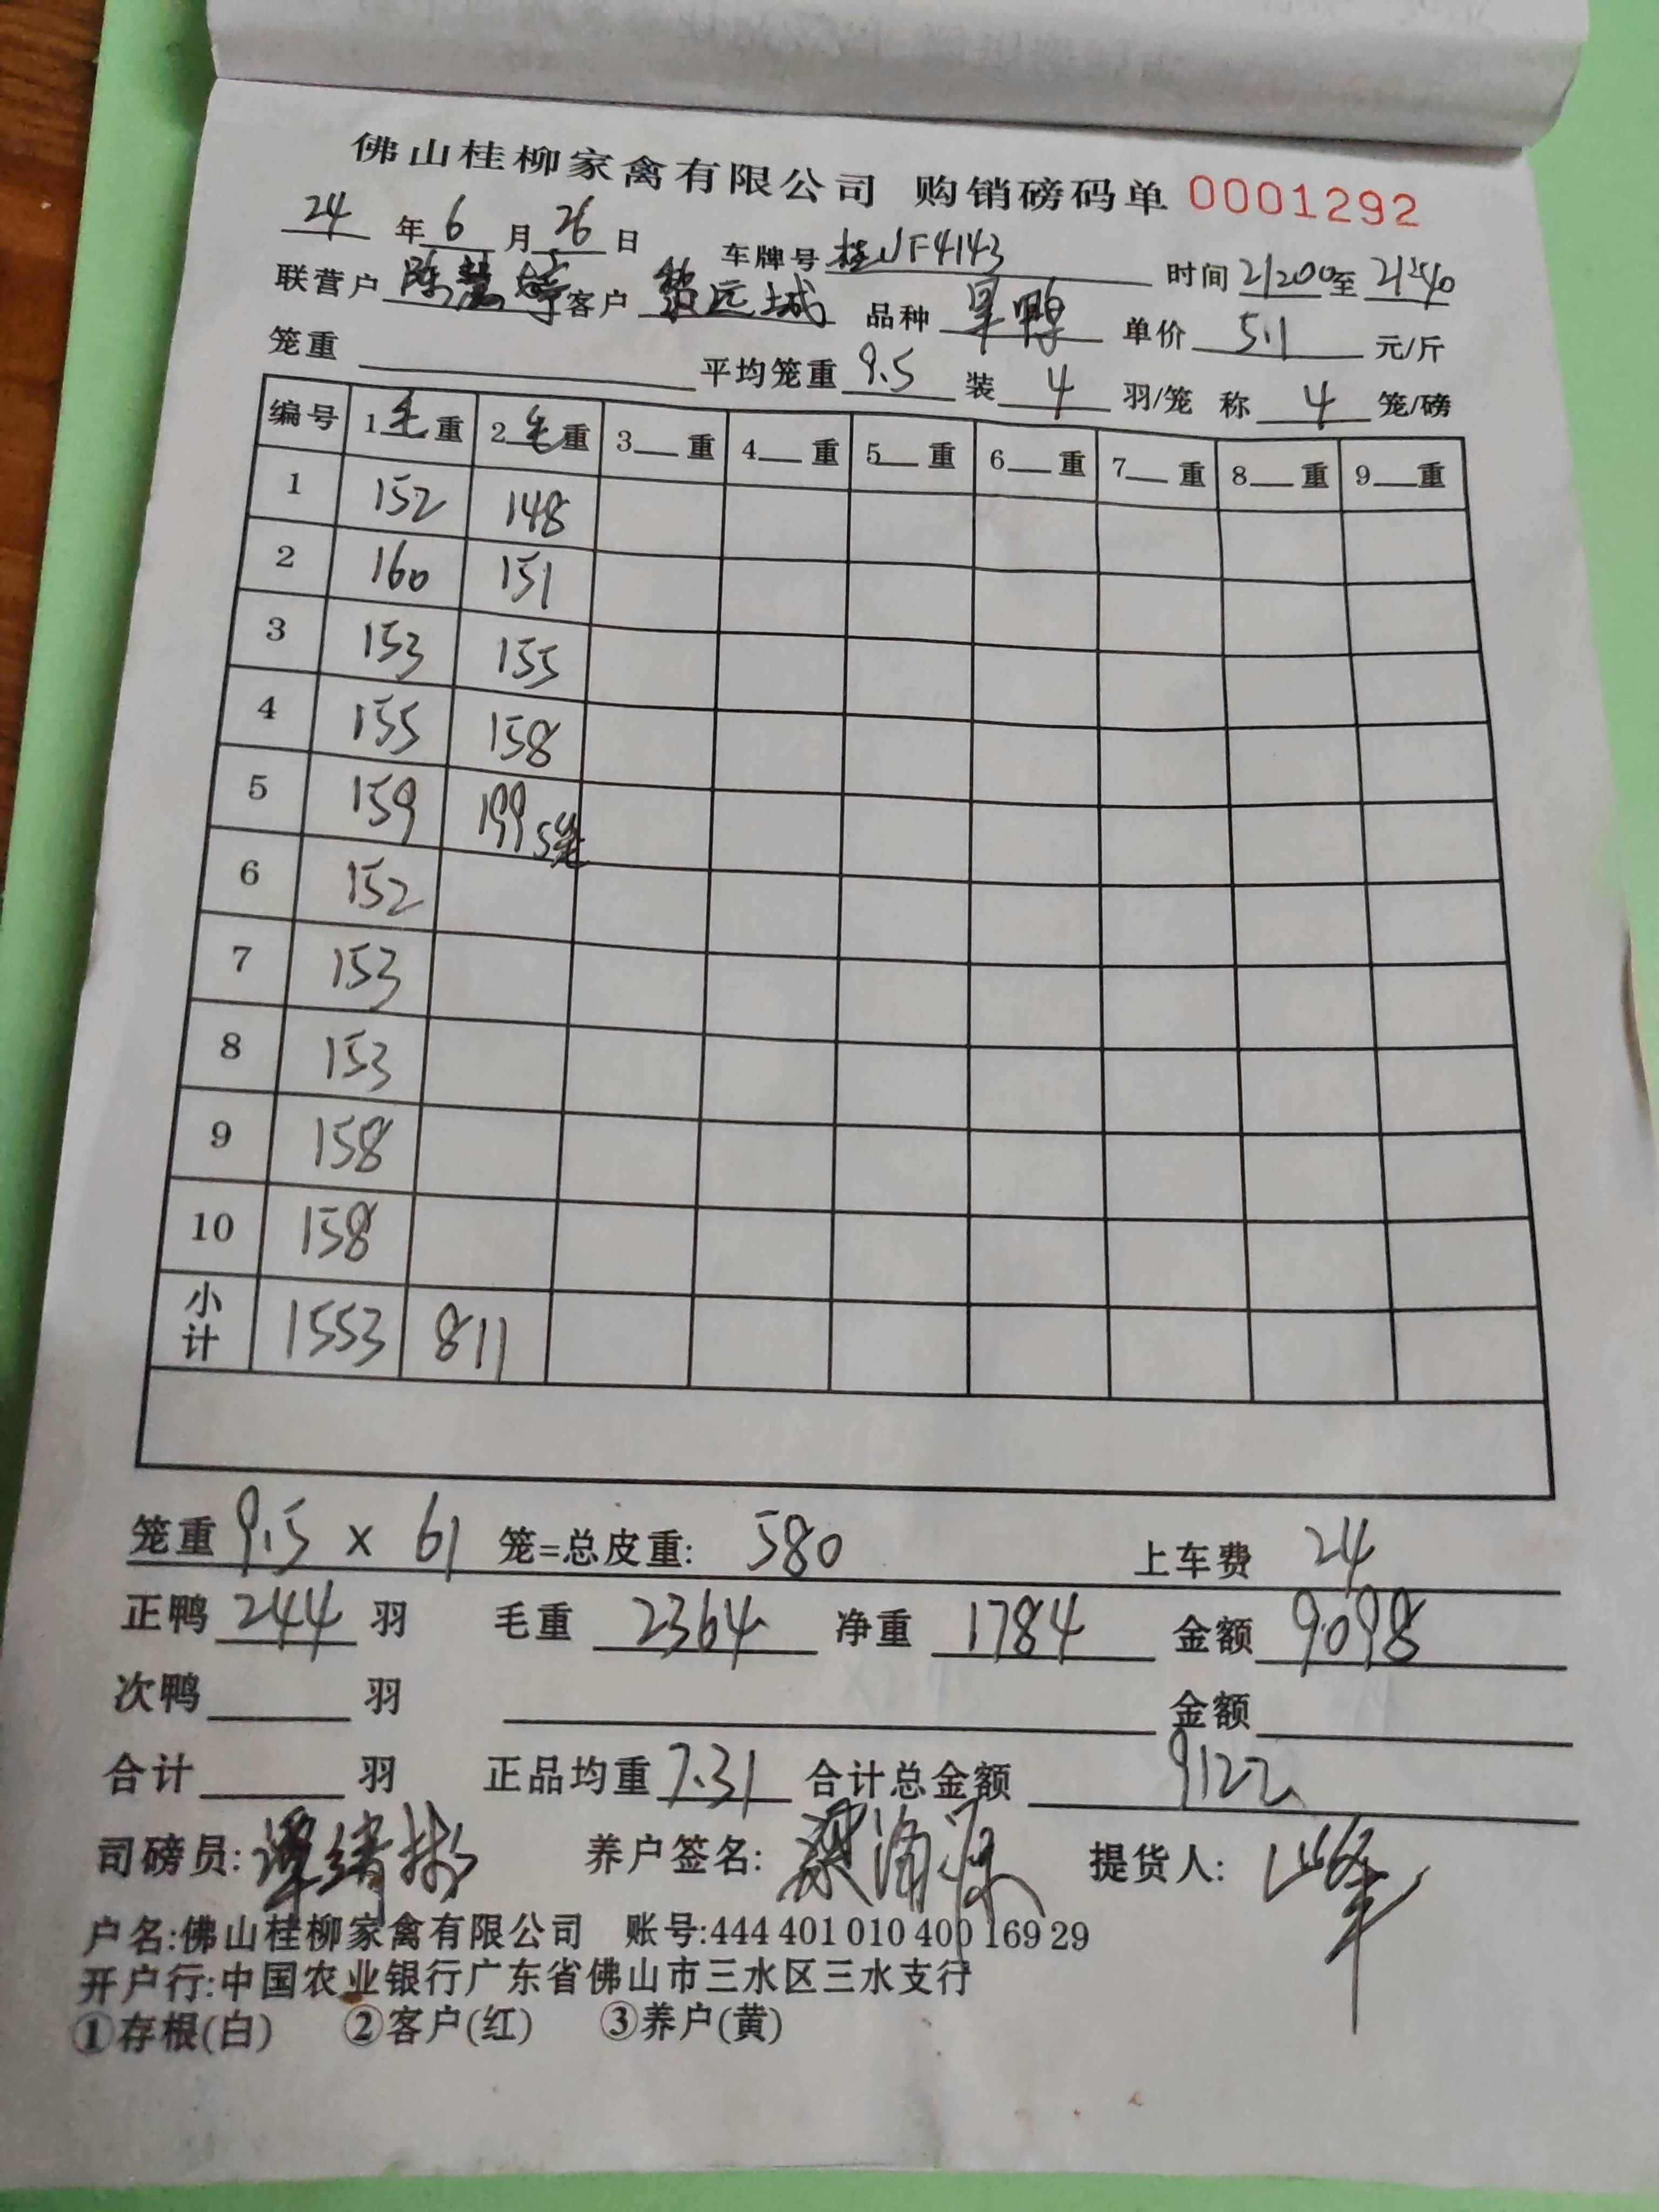 佛山桂柳家禽有限公司 购销磅码单 0001292
24 年 6 月 26 日 车牌号 桂JF4143 时间 21:00 至 21:40
联营户 陈慧婷 客户 黎远城 品种 旱鸭 单价 5.1 元/斤
笼重 平均笼重 9.5 装 4 羽/笼 称 4 笼/磅
编号 1毛重 2毛重 3__重 4__重 5__重 6__重 7__重 8__重 9__重
1 152 148
2 160 151
3 153 155
4 155 158
5 159 199 5笼
6 152
7 153
8 153
9 158
10 158
小计 1553 811
笼重 9.5 x 61 笼=总皮重: 580 上车费 24
正鸭 244 羽 毛重 2364 净重 1784 金额 9098
次鸭 羽 金额
合计 羽 正品均重 7.31 合计总金额 9122
司磅员: 养户签名: 提货人:
户名:佛山桂柳家禽有限公司 账号:444 401 010 400 169 29
开户行:中国农业银行广东省佛山市三水区三水支行
①存根(白) ②客户(红) ③养户(黄)